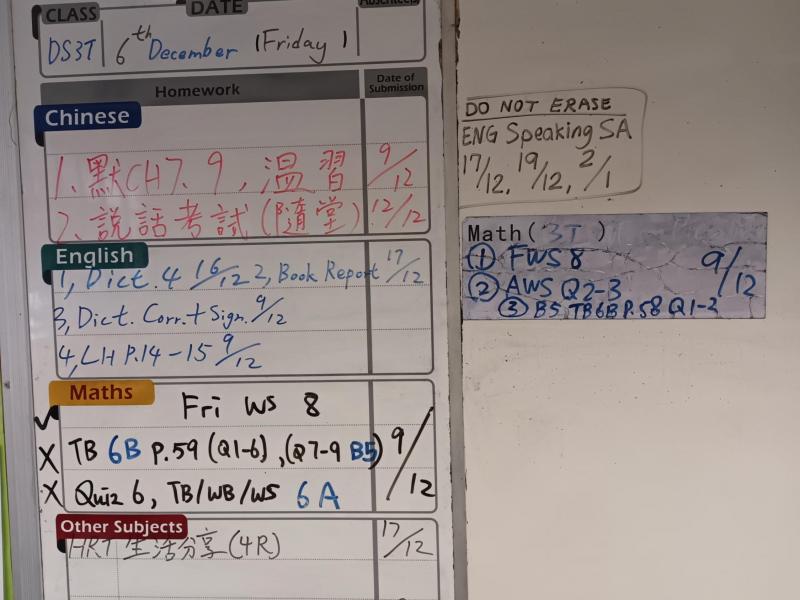 CLASS DATE
DS3T 6th December (Friday)
Homework Date of Submission
Chinese
1. 默CH7. 9, 温習 9/12
2. 説話考試(隨堂) 12/12
English
1, Dict. 4 16/12 2, Book Report 17/12
3, Dict. Corr. + Sign. 9/12
4, LH P.14-15 9/12
Maths
✓ Fri WS 8
X TB 6B P.59 (Q1-6), (Q7-9 B5) 9/12
X Quiz 6, TB/WB/WS 6A
Other Subjects
HRT 生活分享(4R) 17/12
DO NOT ERASE
ENG Speaking SA
17/12, 19/12, 2/1
Math(3T)
① FWS 8 9/12
② AWS Q2-3
③ B5 TB6B P.58 Q1-2